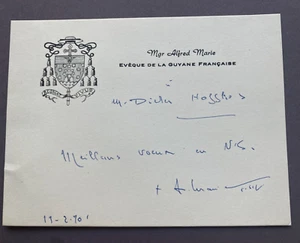 Mgr Alfred Marie
EVÊQUE DE LA GUYANE FRANÇAISE
à
M. Dieter
Meilleurs voeux en N.S.
+ A. Marie
11-2-90